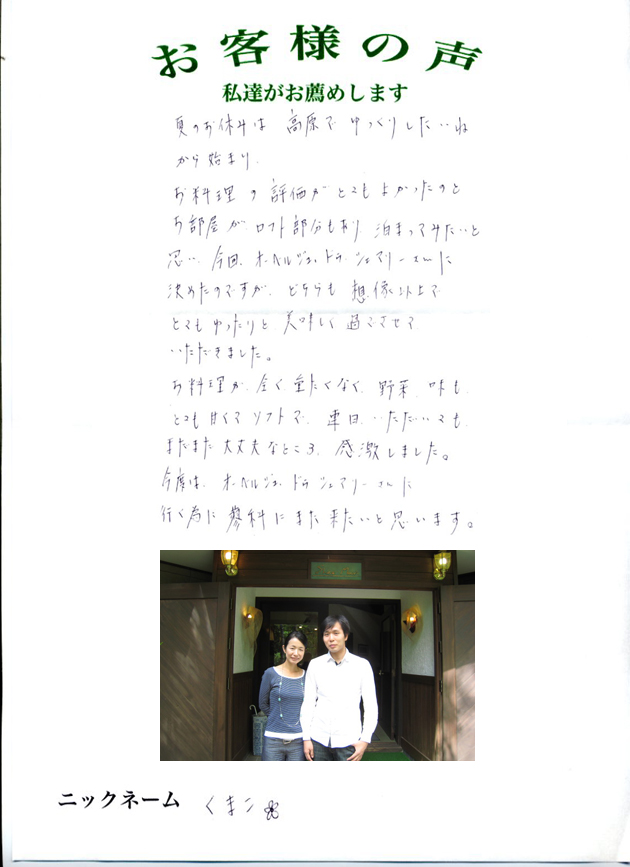 お客様の声
私達がお薦めします
夏のお休みは 高原で ゆっくりしたいね
から始まり、
お料理の評価がとてもよかったのと
お部屋が、ロフト部分もあり、泊まってみたいと
思い、今回、オーベルジュ・ドゥ・シェマリーさんに
決めたのですが、どちらも想像以上で
とてもゆったりと、美味しく過ごさせて
いただきました。
お料理が、全く重たくなく、野菜、味も、
とても甘くてソフトで、連日、いただいても、
まだまだ大丈夫なところ、感激しました。
今度は、オーベルジュ・ドゥ・シェマリーさんに
行く為に蓼科にまた来たいと思います。
ニックネーム くまこ